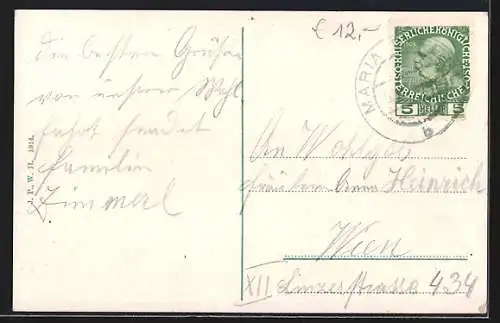 € 12,-
die besten Grüße
von unserer Wahl
fahrt sendet
Familie
Zimmal
J. P., W. II. 1914.
MARIA
KAISERLICHE KÖNIGLICHE
ÖSTERREICHISCHE
5 HELLER 5
b
An Wohlgeb
Fräulein Anna Heinrich
Wien
XII Linzerstrasse 434